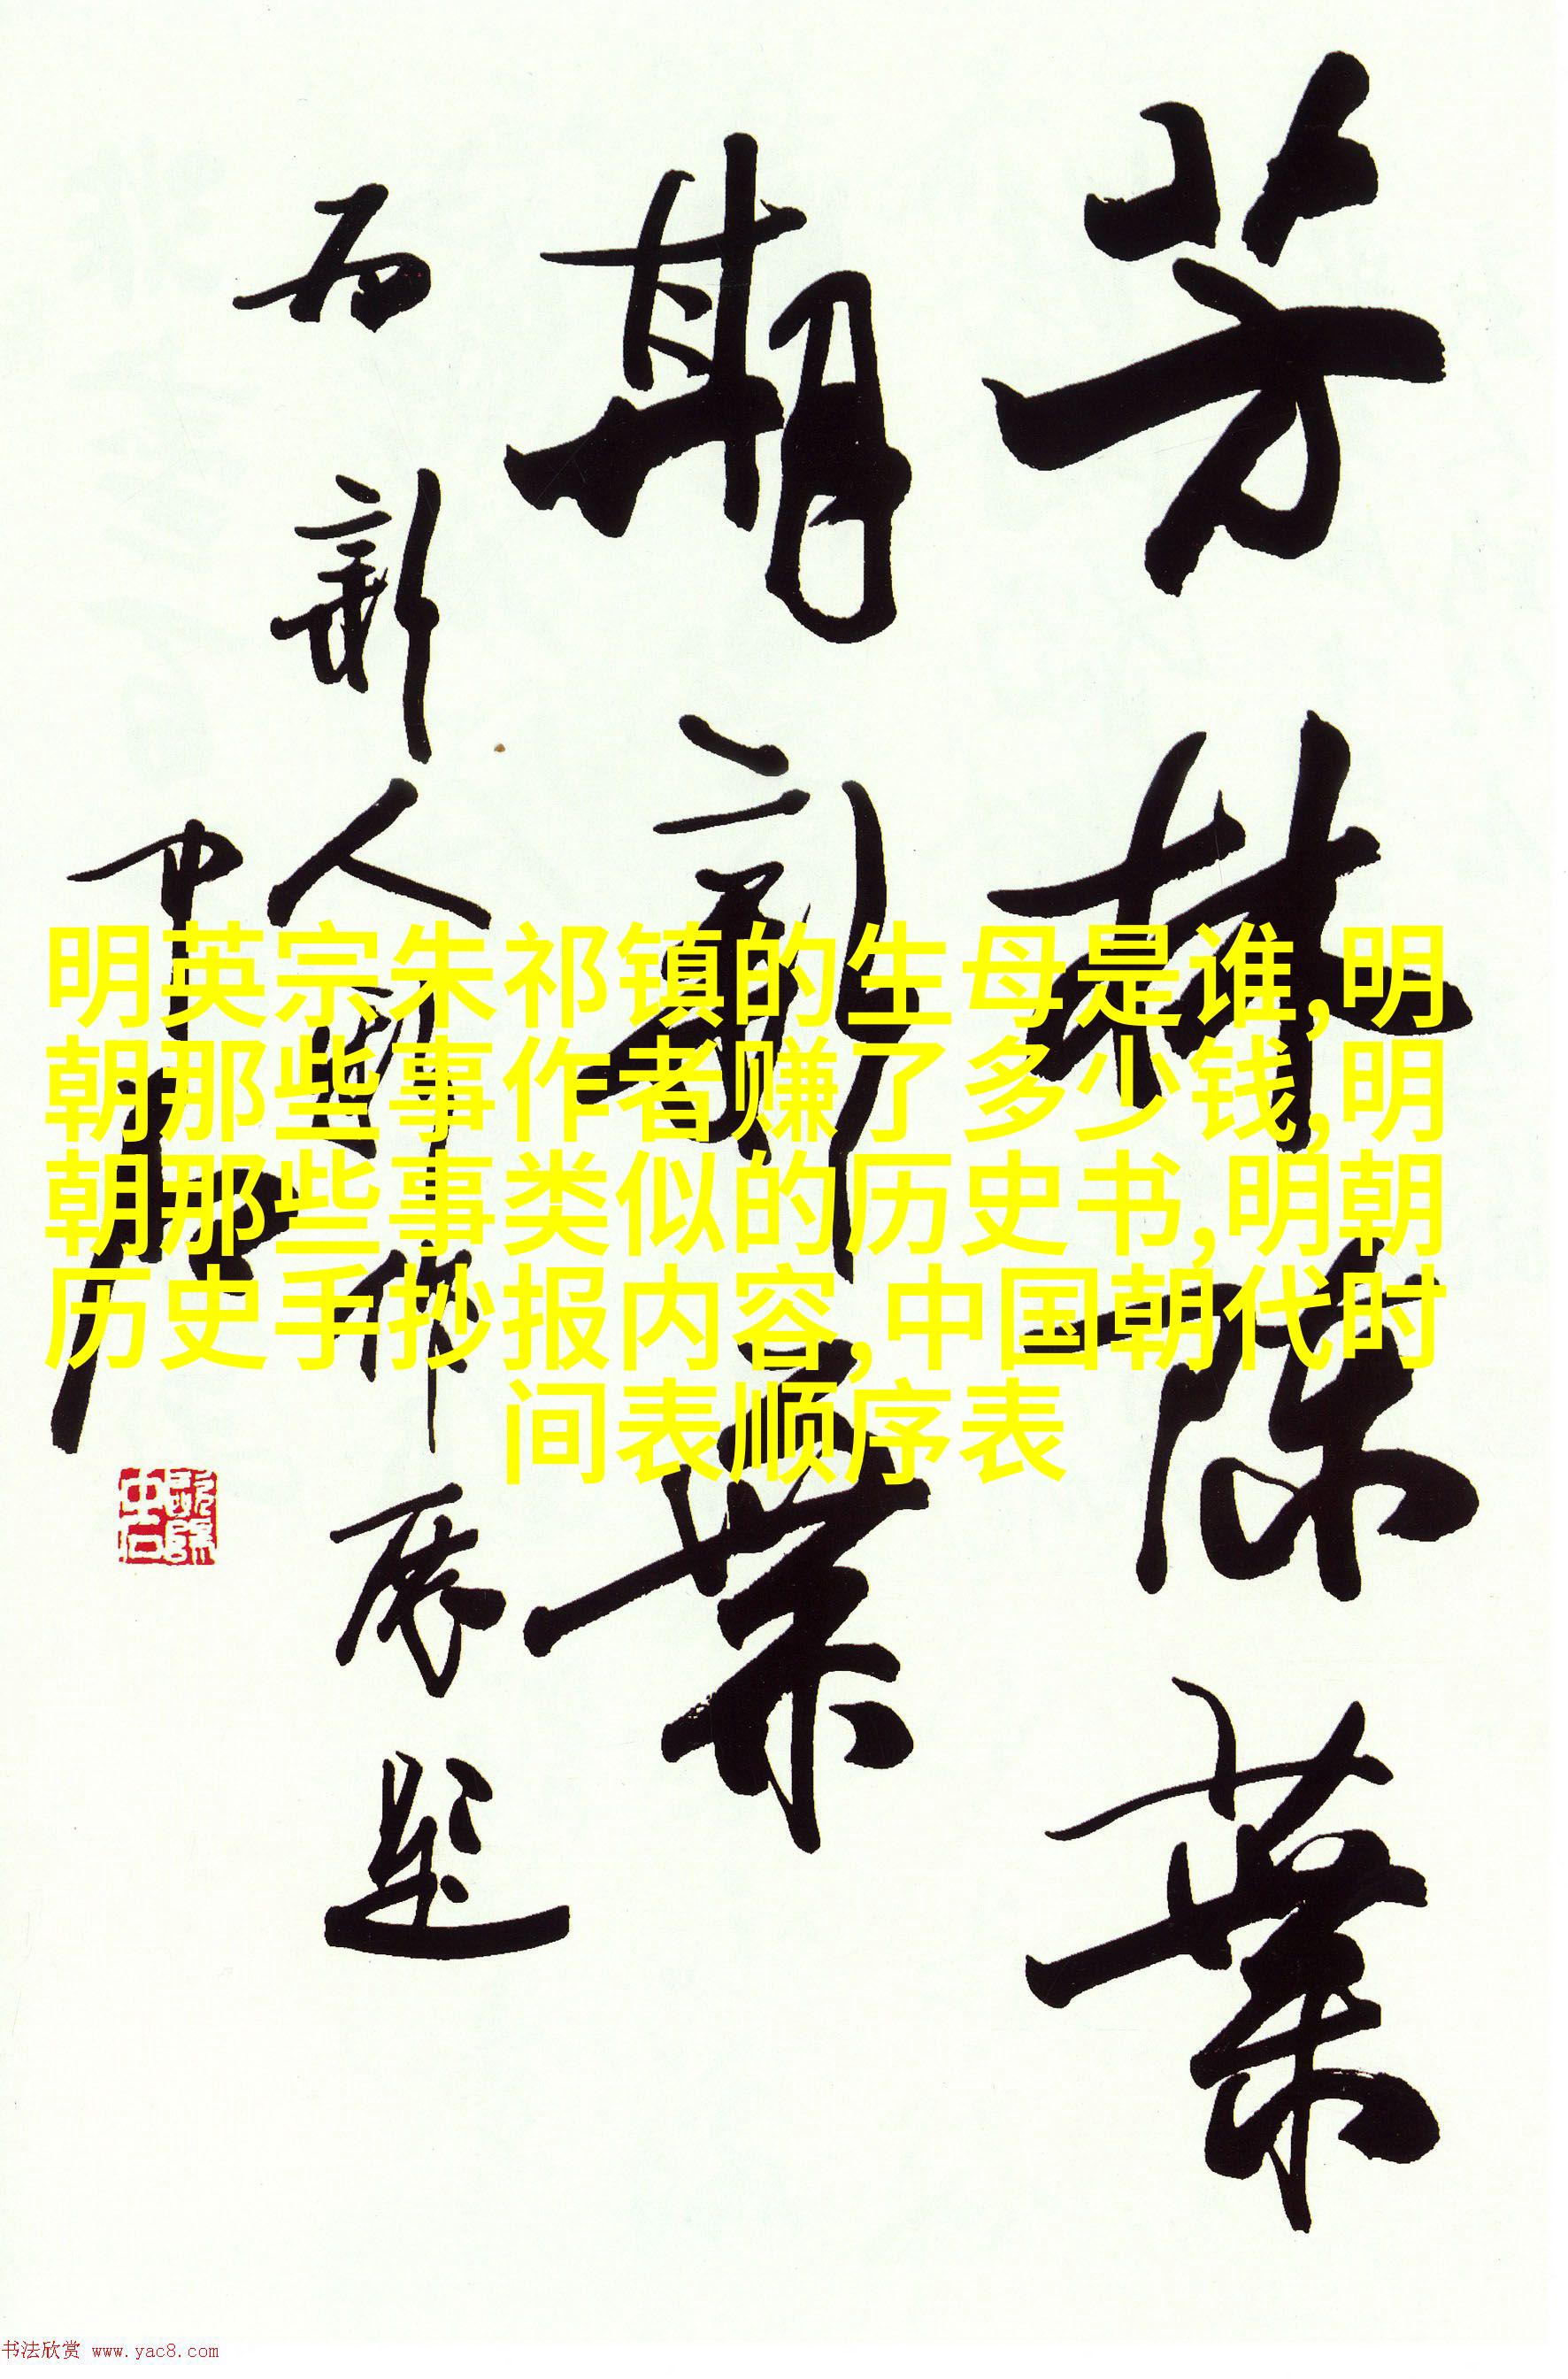 芳林陈叶
期新叶
为新人国作展题
中石
明英宗朱祁镇的生母是谁,明
朝那些事作者赚了多少钱,明
朝那些事类似的历史书,明朝
历史手抄报内容,中国朝代时
间表顺序表
书法欣赏 www.yac8.com